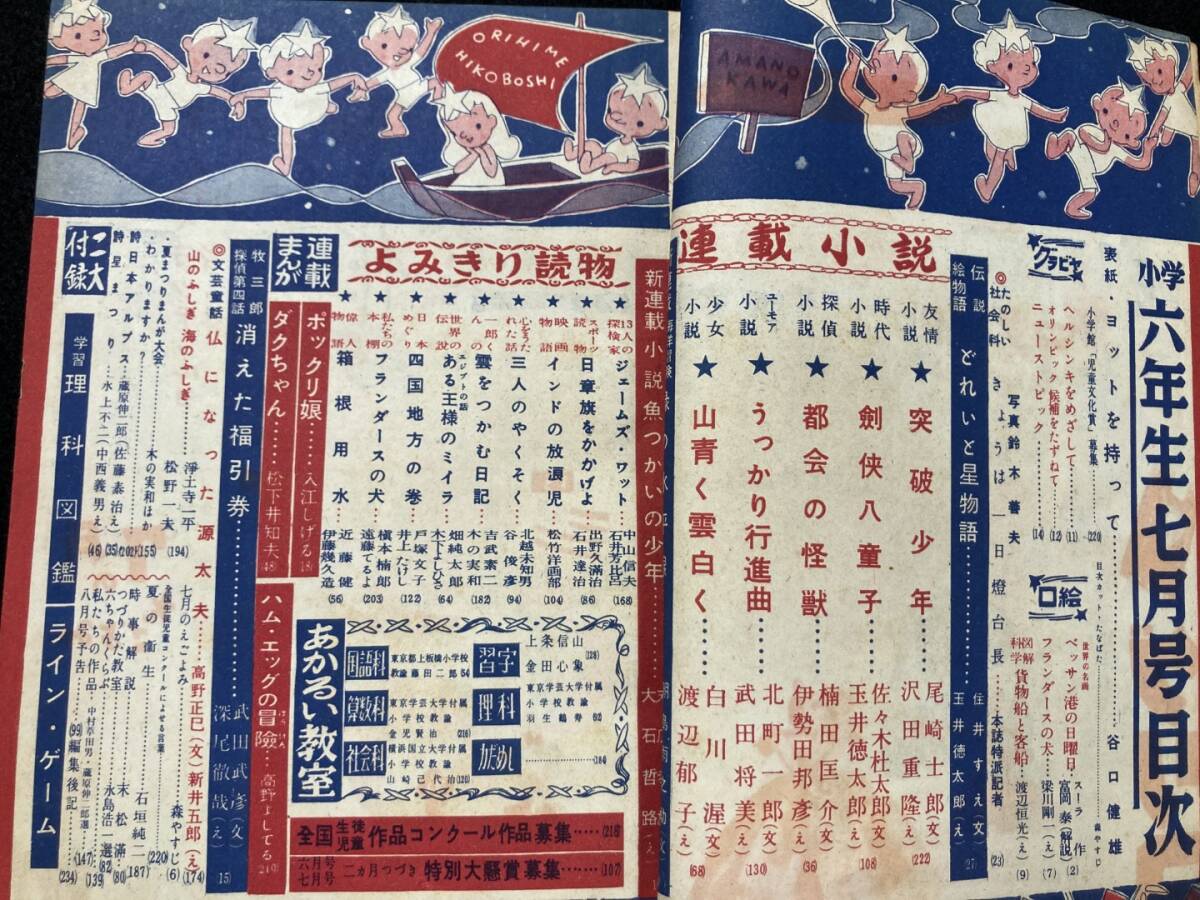 ORIHIME
HIKOBOSHI
AMANO
KAWA
小学六年生七月号目次
表紙・ヨットを持って……谷口健雄
目次カット・たなばた……森やすじ
グラビヤ
小学館「児童文化賞」募集……(220)
ヘルシンキをめざして……(11)
オリンピック候補をたずねて……(12)
ニューストピック……(14)
口絵
世界の名画
ベッサン港の日曜日……スーラ作
富岡泰(解説)(2)
フランダースの犬……梁川剛一(え)(7)
図解科学 貨物船と客船……渡辺恒光(え)(9)
たのしい社会科 きょうは一日燈台長……本誌特派記者(23)
写真 鈴木善夫
伝説絵物語 どれいと星物語……住井すえ(文)
玉井徳太郎(え)(27)
連載小説
友情小説 ★ 突破少年……尾崎士郎(文)
沢田重隆(え)(222)
時代小説 ★ 劍侠八童子……佐々木杜太郎(文)
玉井徳太郎(え)(108)
探偵小説 ★ 都会の怪獣……楠田匡介(文)
伊勢田邦彦(え)(36)
ユーモア小説 ★ うっかり行進曲……北町一郎(文)
武田将美(え)(130)
少女小説 ★ 山青く雲白く……白川渥(文)
渡辺郁子(え)(68)
新連載小説 魚つかいの少年
大石哲路(え)
よみきり読物
★ 13人の探検家 ジェームズ・ワット……中山信夫
石井芳比呂(168)
★ スポーツ読物 日章旗をかかげよ……出野久満治
石井達治(86)
★ 映画物語 インドの放浪児……松竹洋画部(104)
★ 心をうたれた話 三人のやくそく……北越未知男
谷俊彦(94)
★ 一郎くんの 雲をつかむ日記……吉武素二
木の実和(182)
★ 世界の伝説 エジプトの話 ある王様のミイラ……畑純太郎
木下よしひさ(64)
★ 日本めぐり 四国地方の巻……戸塚文子
井上たけし(122)
★ 私たちの本棚 フランダースの犬……槇本楠郎
遠藤てるよ(203)
★ 偉人物語 箱根用水……近藤健
伊藤幾久造(56)
連載まんが
ポックリ娘……入江しげる(18)
ダクちゃん……松下井知夫(48)
ハム・エッグの冒険……高野よしてる(210)
あかるい教室
習字
上条信山
金田心象(128)
国語科
東京都上板橋小学校
教諭藤田二郎 54
理科
東京学芸大学付属
小学校教諭
羽生鶴寿 92
算数科
東京学芸大学付属
小学校教諭
金児賢治(216)
社会科
横浜国立大学付属
小学校教諭
山崎己代治(120)
力だめし
……184
全国生徒児童作品コンクール作品募集……(218)
六月号七月号 二カ月つづき 特別大懸賞募集……(107)
牧三郎探偵第四話 消えた福引券……武田武彦(文)
深尾徹哉(え)(15)
◎文芸童話 仏になった源太夫……高野正巳(文)新井五郎(え)(174)
山のふしぎ 海のふしぎ……淨土寺一平
松野一夫(194)
七月のえごよみ……森やすじ(6)
全国生徒児童コンクールによせる言葉……(220)
・夏まつりまんが大会……木の実和ほか(155)
夏の衛生……石垣純二(187)
・わかりますか?……(202)
時事解説……末松満(80)
詩 日本アルプス……蔵原伸二郎(佐藤泰治え)(35)
つづりかた教室……永島浩一選(82)
詩 星まつり……水上不二(中西義男え)(46)
六ちゃんくらぶ……(139)
私たちの作品……中村草田男・蔵原伸二郎選……(147)
八月号予告……(99)
編集後記……(234)
二大付録
学習理科図鑑
ライン・ゲーム